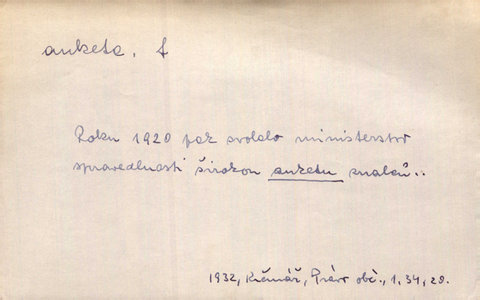 anketa, f
Roku 1920 pak svolalo ministerstvo
spravedlnosti širokou anketu znalců..
1932, Krčmář, Právo obč., 1, 34, 28.